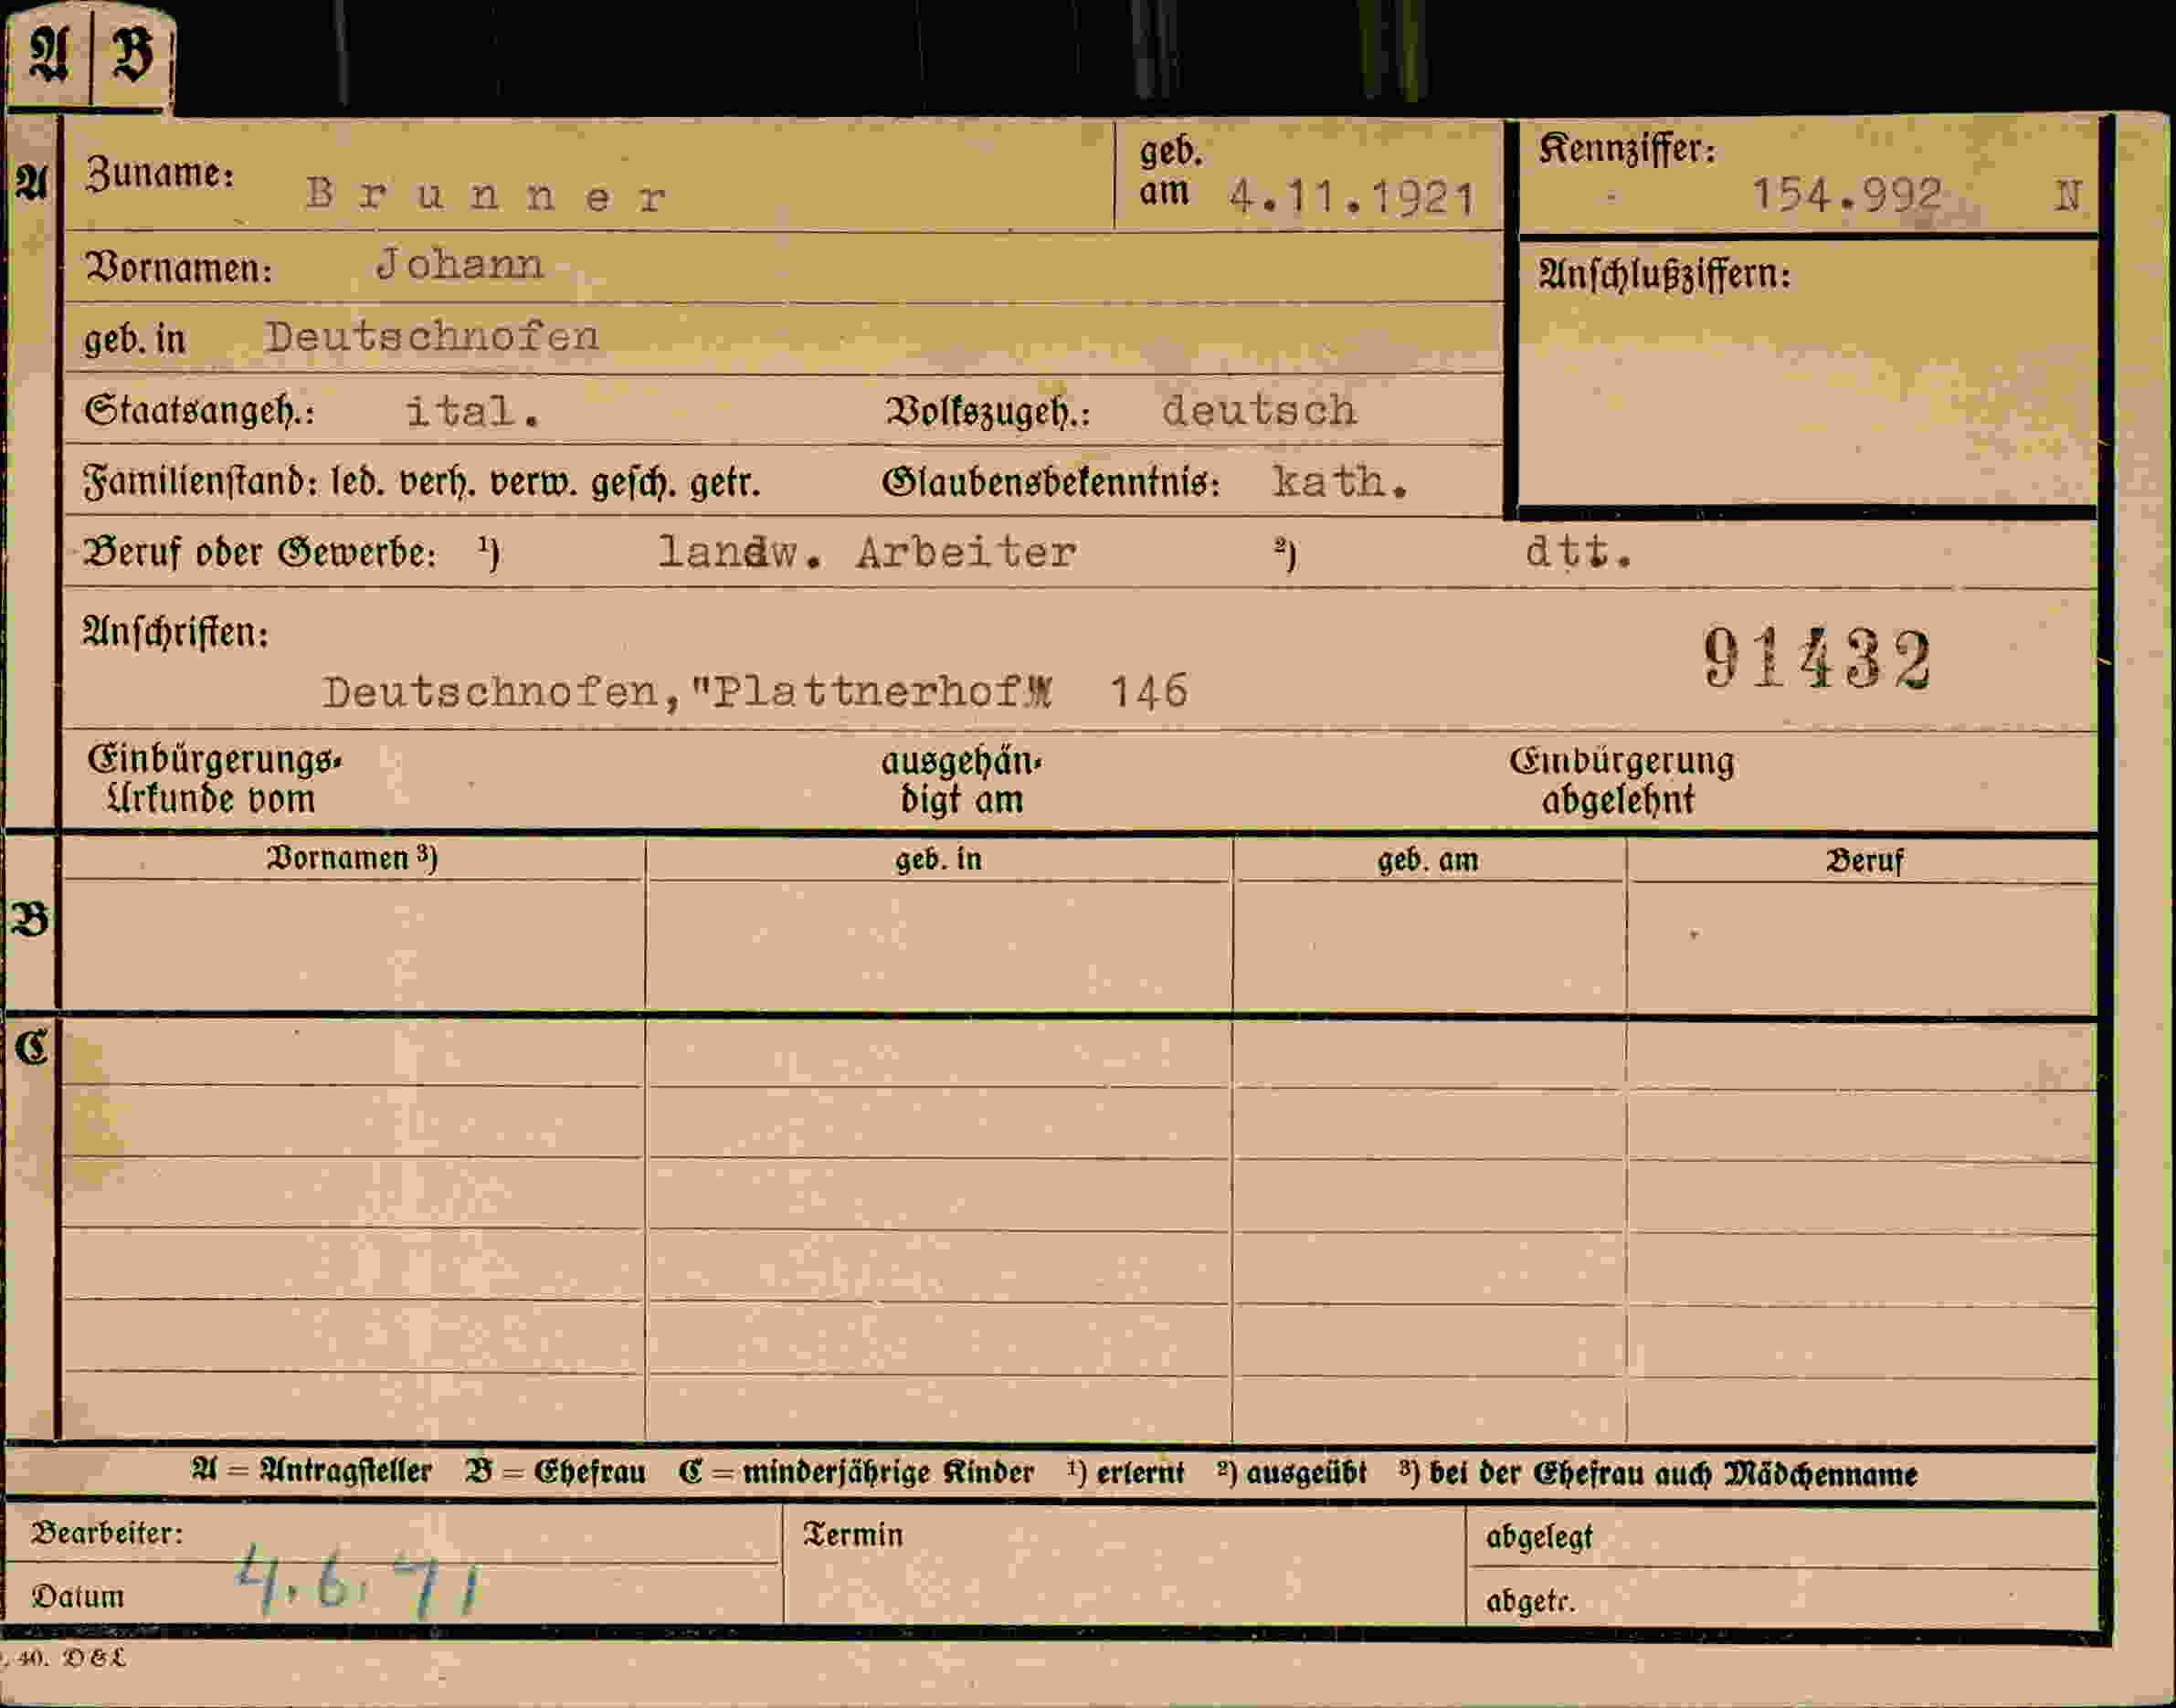 A B
A
Zuname: Brunner geb. am 4.11.1921 Kennziffer: 154.992 N
Vornamen: Johann Anschlußziffern:
geb. in Deutschnofen
Staatsangeh.: ital. Volkszugeh.: deutsch
Familienstand: led. verh. verw. gesch. getr. Glaubensbekenntnis: kath.
Beruf oder Gewerbe: ¹) landw. Arbeiter ²) dtt.
Anschriften: 91432
Deutschnofen,"Plattnerhof" 146
Einbürgerungs- ausgehän- Einbürgerung
Urkunde vom digt am abgelehnt
Vornamen ³) geb. in geb. am Beruf
B
C
A = Antragsteller B = Ehefrau C = minderjährige Kinder ¹) erlernt ²) ausgeübt ³) bei der Ehefrau auch Mädchenname
Bearbeiter: Termin abgelegt
Datum 4.6.41 abgetr.
40. D & L